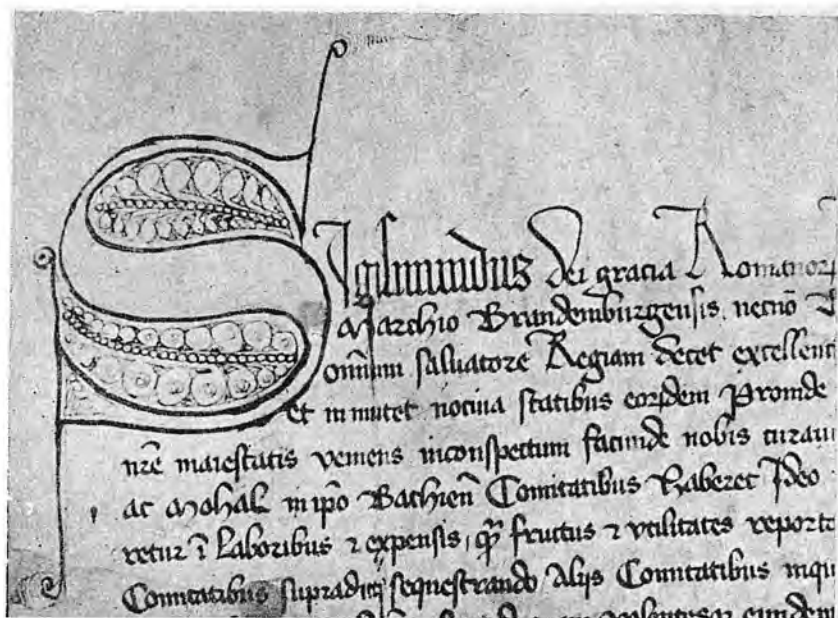 Sigismundus dei gracia Romanorꝝ
Marchio Brandemburgensis, necnō
om̄nium saluatore Regiam decet excellent
et in mutet nociua statibus eorꝝdem Proinde
nr̄e maiestatis veniens in conspectum facunde nobis curauit
ac Mohal in ip̄o Bachien̄ Comitatibus Haberet Ideo
retur ī Laboribus ⁊ expensis, qꝫ fructus ⁊ vtilitates reporta
Comitatibus supradictis sequestrando Alijs Comitatibus
eundem